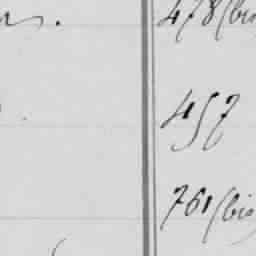 478 (bis
457
761 (bis